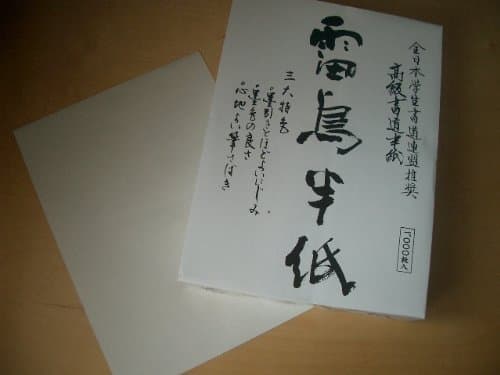 全日本学生書道連盟推奨
高級書道半紙
雷鳥半紙
三大特色
・墨引きとほどよいにじみ
・墨色の良さ
・心地よい筆さばき
1,000枚入